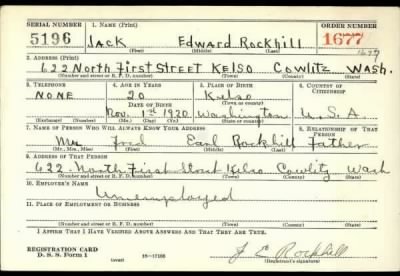 SERIAL NUMBER 1. NAME (Print) ORDER NUMBER
5196 JACK Edward Rockhill 1677
(First) (Middle) (Last) 1677
2. ADDRESS (Print)
622 North First Street Kelso Cowlitz Wash.
(Number and street or R. F. D. number) (Town) (County) (State)
3. TELEPHONE 4. AGE IN YEARS 5. PLACE OF BIRTH 6. COUNTRY OF CITIZENSHIP
NONE 20 Kelso
DATE OF BIRTH (Town or county)
Nov. 1st 1920 Washington U.S.A.
(Exchange) (Number) (Mo.) (Day) (Yr.) (State or country)
7. NAME OF PERSON WHO WILL ALWAYS KNOW YOUR ADDRESS 8. RELATIONSHIP OF THAT PERSON
Mr. Fred Earl Rockhill Father
(Mr., Mrs., Miss) (First) (Middle) (Last)
9. ADDRESS OF THAT PERSON
622 North First Street Kelso, Cowlitz Wash
(Number and street or R. F. D. number) (Town) (County) (State)
10. EMPLOYER'S NAME
Unemployed
11. PLACE OF EMPLOYMENT OR BUSINESS
(Number and street or R. F. D. number) (Town) (County) (State)
I AFFIRM THAT I HAVE VERIFIED ABOVE ANSWERS AND THAT THEY ARE TRUE.
REGISTRATION CARD
D. S. S. Form 1 (over) 16—17105 J E Rockhill